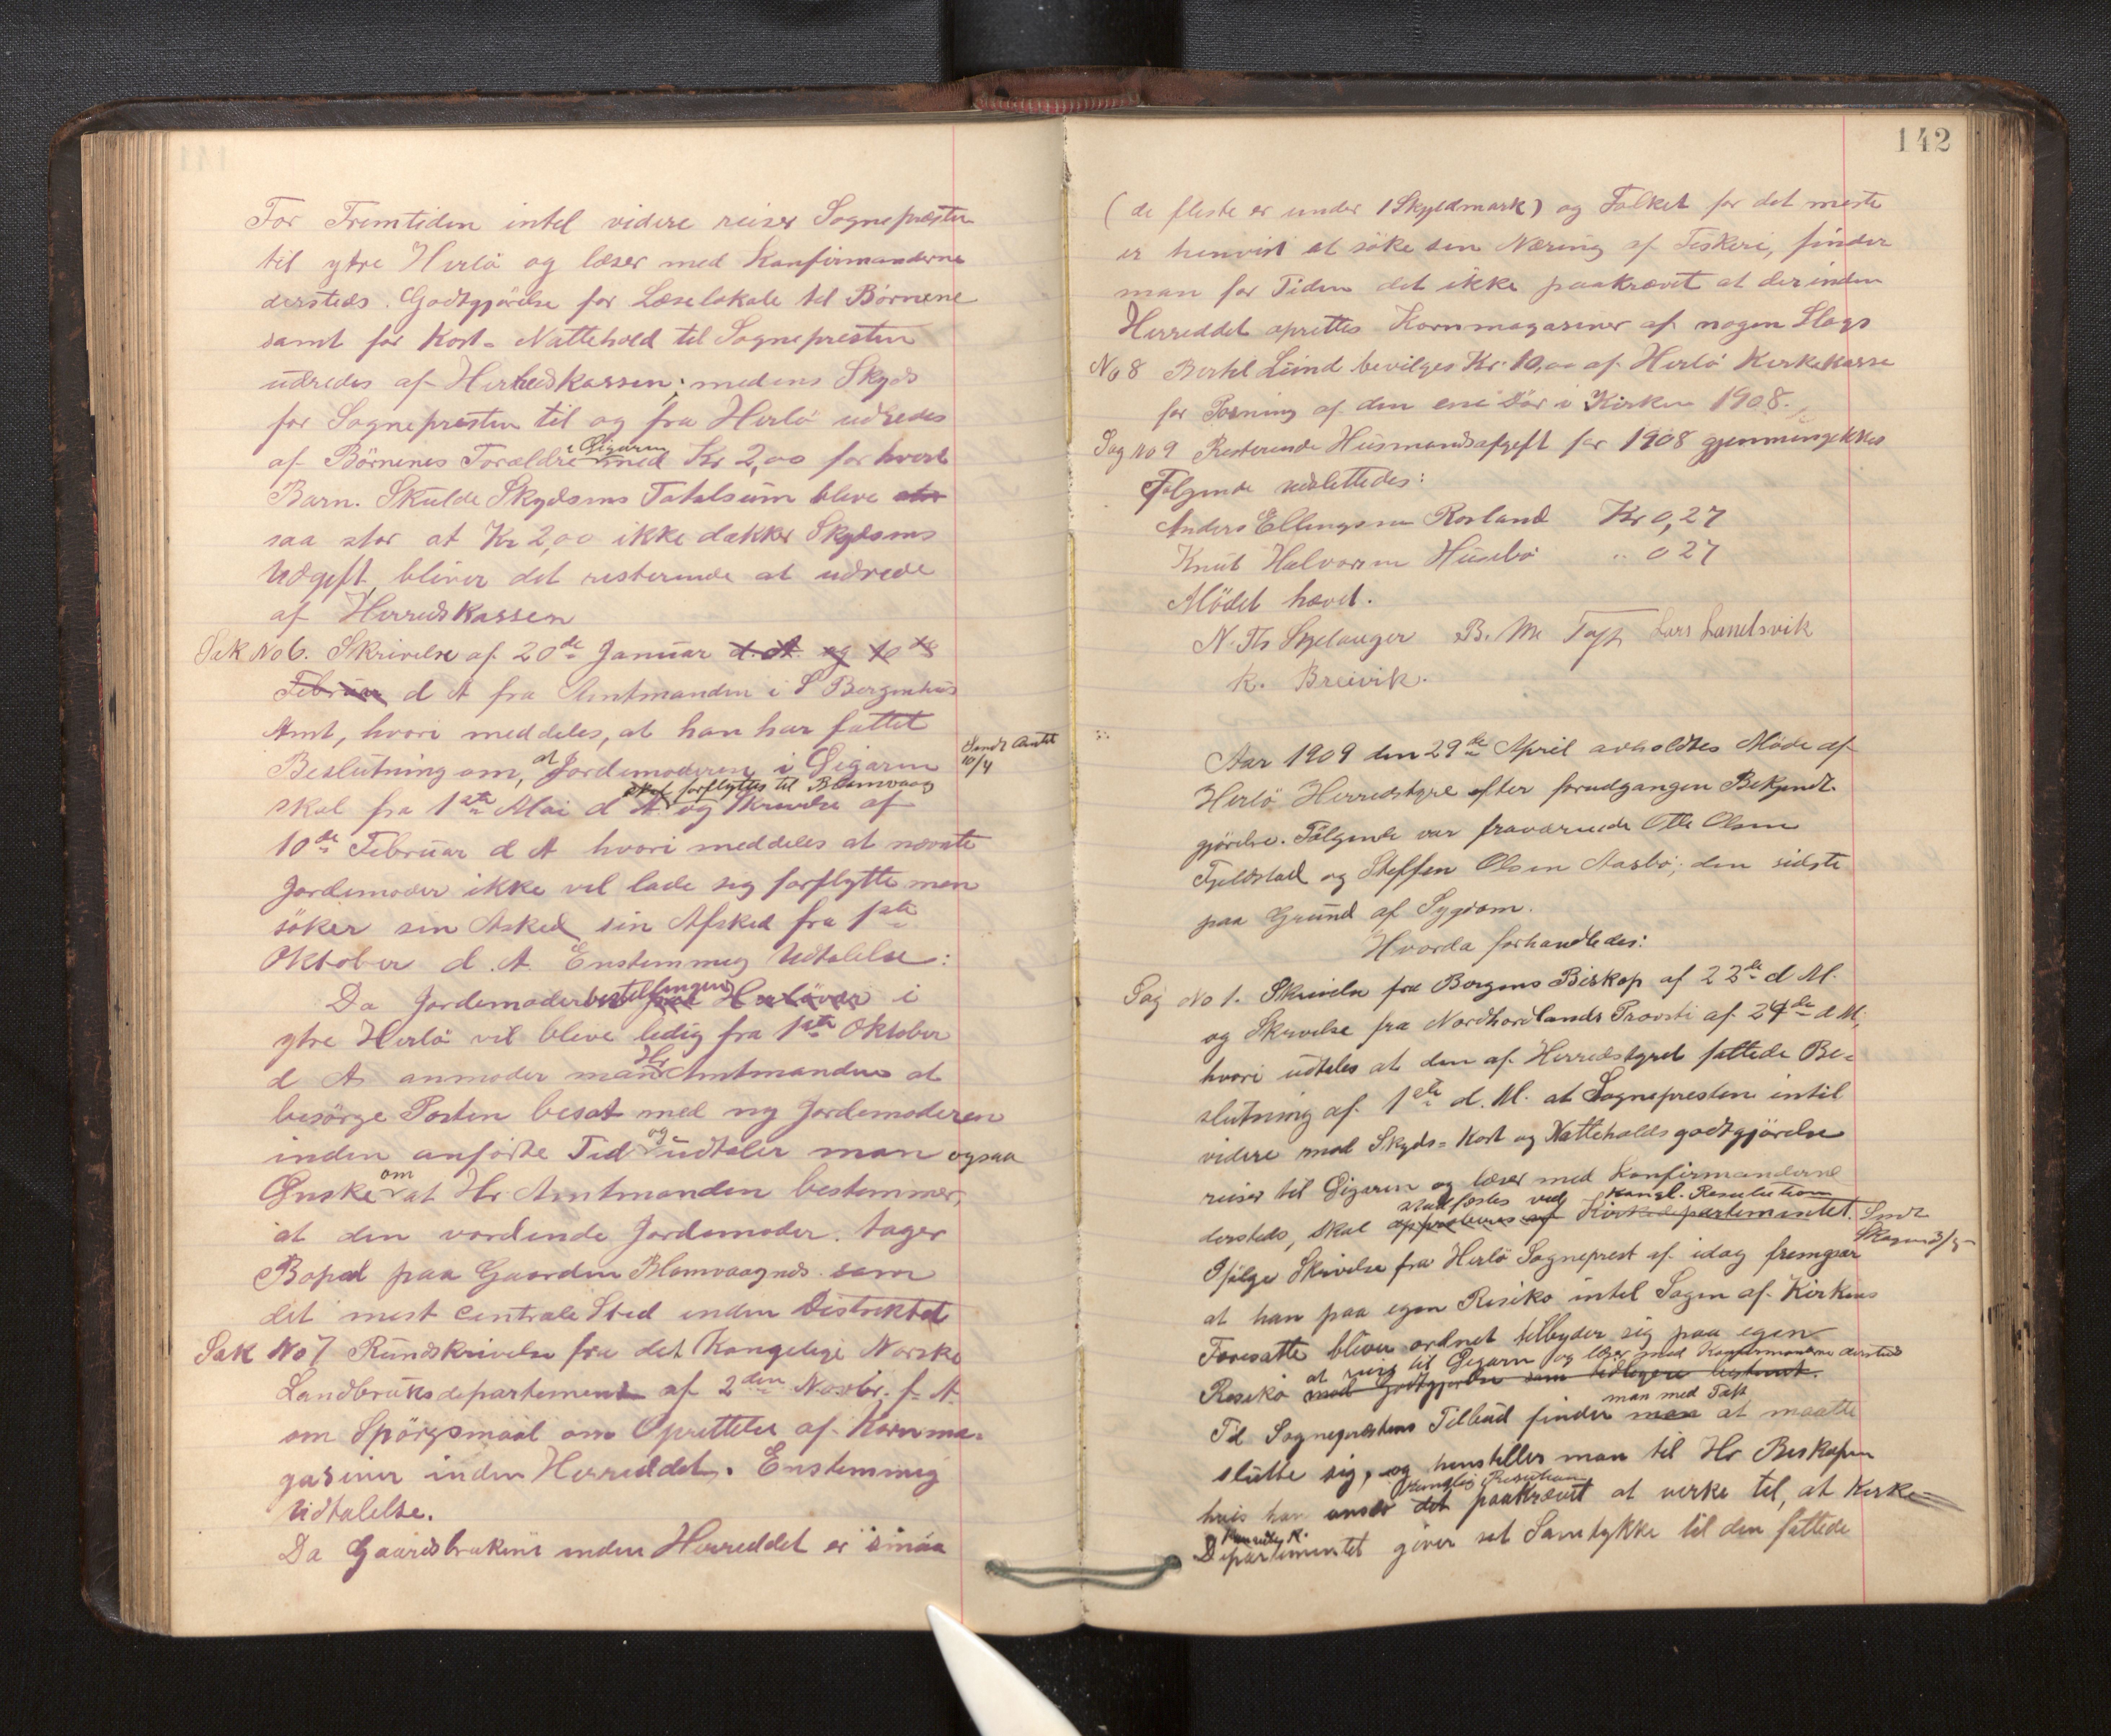 For Fremtiden intil videre reiser Sognepræsten
til ytre Herlö og læser med Konfirmanderne
dersteds. Godtgjörelse for Læselokale til Börnene
samt for Kost- Nattehold til Sognepresten
udredes af Herredskassen; medens Skyds
for Sognepresten til og fra Herlö udredes
af Börnenes Forældre i Gigaren med Kr 2,00 for hvert
Barn. Skulde Skydsens Totalsum blive stor
saa stor at Kr 2,00 ikke dækker Skydsens
Udgift, bliver det resterende at udrede
af Herredskassen
Sak No 6. Skrivelse af 20de Januar d. A. og 10de
Februar d A fra Amtmanden i S Bergenhus
Amt, hvori meddeles, at han har fattet
Beslutning om, at Jordemoderen i Gigaren
Sendt Amtet
10/4
skal fra 1ste Mai d A. skal forflyttes til Blomvaag og Skrivelse af
10de Februar d A hvori meddeles at nævnte
Jordemoder ikke vil lade sig forflytte men
söker sin Asked sin Afsked fra 1ste
Oktober d. A. Enstemmig Udtalelse:
Da Jordemoderbestillingen paa Herlövær i
ytre Herlö vil bleve ledig fra 1ste Oktober
d A anmoder man Hr Amtmanden at
besörge Posten besat med ny Jordemoderen
inden anförte Tid og udtaler man ogsaa
Önske om at Hr Amtmanden bestemmer,
at den vordende Jordemoder tager
Bopæl paa Gaarden Blomvaagnes som
det mest centrale Sted inden Distriktet
Sak No 7 Rundskrivelse fra det Kongelige Norske
Landbruksdepartement af 2den Novbr. f. A.
om Spörgsmaal om Oprettelse af Kornma-
gasiner inden Herreddet. Enstemmig
Udtalelse.
Da Gaardsbrukene inden Herreddet er smaa
142
(de fleste er under 1 Skyldmark) og Folket for det meste
er henvist at söke sin Næring af Fiskeri, finder
man for Tiden det ikke paakrævet at der inden
Herreddet oprettes Kornmagasiner af nogen Slags
No 8 Bertil Lund bevilges Kr. 10,00 af Herlö Kirkekasse
for Pasning af den ene Dör i Kirken 1908.
Sag No 9 Resterende Husmandsafgift for 1908 gjennemgikkes
Fölgende udslettedes:
Anders Ellingsen Rosland Kr 0,27
Knut Halvorsen Husebö " 0 27
Mödet hævet.
N. Ths Sgelanger B. M. Toft Lars Landsvik
K. Breivik.
Aar 1909 den 29de April avholdtes Möde af
Herlö Herredstyre efter forudgangen Bekjendt-
gjörelse. Fölgende var fraværende Otte Olsen
Fjeldstad og Steffen Olsen Aasbö; den sidste
paa Grund af Sygdom.
Hvorda forhandledes:
Sag No 1. Skrivelse fra Bergens Biskop af 23de d M.
og Skrivelse fra Nordhordlands Provsti af 24de d M,
hvori udtales at den af Herredstyret fattede Be-
slutning af 1ste d. M. at Sognepresten intil
videre mod Skyds- Kost og Natteholdsgodtgjörelse
reiser til Gigaren og læser med Konfirmanderne
dersteds, skal approberes af stadfæstes ved Kirkedepartementet. Kongl. Resolution
Sendt
Skogen 3/5
Ifölge Skrivelse fra Herlö Sogneprest af idag fremgaar
at han paa egen Risiko intil Sagen af Kirkens
Foresatte bliver ordnet tilbyder sig paa egen
Risiko at reise til Gigaren og læser med Konfirmanderne dersteds
mod Godtgjörelse som tidligere bestemt.
Til Sogneprestens Tilbud finder man man med Takk at maatte
slutte sig, og henstiller man til Hr Biskopen
hvis han anser det Kongelig Resolution paakrævet at virke til, at Kirke-
Departementet giver sit Samtykke til den fattede